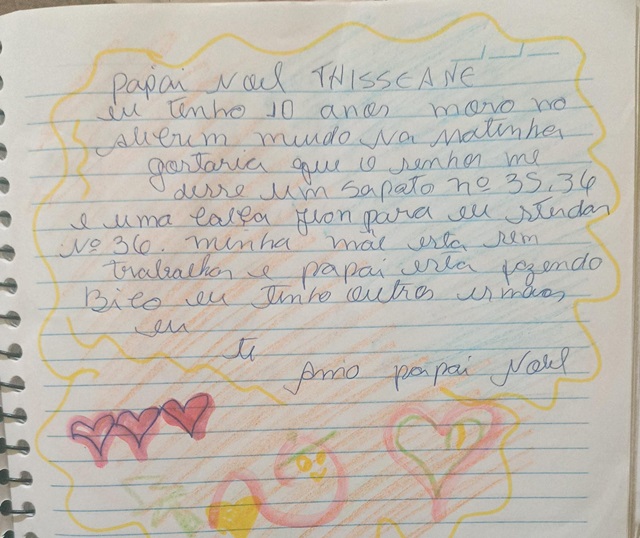 papai Noel THISSEANE
eu tenho 10 anos moro no
mundo Na Matinha
gostaria que o senhor me
desse um sapato nº 35.36
e uma calça para eu
Nº 36. minha mãe esta sem
trabalhar e papai esta fazendo
Bico eu tenho outros irmãos
eu
te
Amo papai Noel